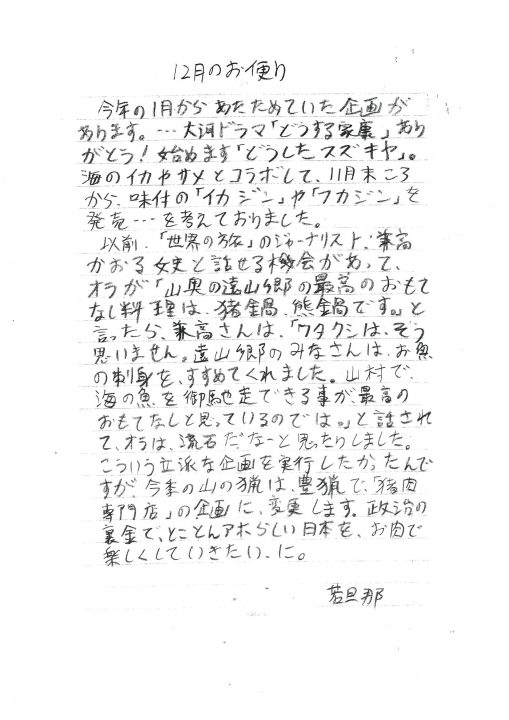 12月のお便り
今年の1月からあたためていた企画が
あります。…大河ドラマ「どうする家康」あり
がとう！始めます「どうしたスズキヤ」。
海のイカやサメとコラボして、11月末ころ
から、味付の「イカジン」や「フカジン」を
発売…を考えておりました。
以前、「世界の旅」のジャーナリスト、兼高
かおる女史と話せる機会があって、
オラが「山奥の遠山郷の最高のおもて
なし料理は、猪鍋、熊鍋です。」と
言ったら、兼高さんは、「ワタクシは、そう
思いません。遠山郷のみなさんは、お魚
の刺身を、すすめてくれました。山村で、
海の魚を御馳走できる事が最高の
おもてなしと思っているのでは。」と話され
て、オラは、流石だなーと思ったりしました。
こういう立派な企画を実行したかったんで
すが、今季の山の猟は、豊猟で、「猪肉
専門店」の企画に、変更します。政治の
裏金で、とことんアホらしい日本を、お肉で
楽しくしていきたい、に。
若旦那